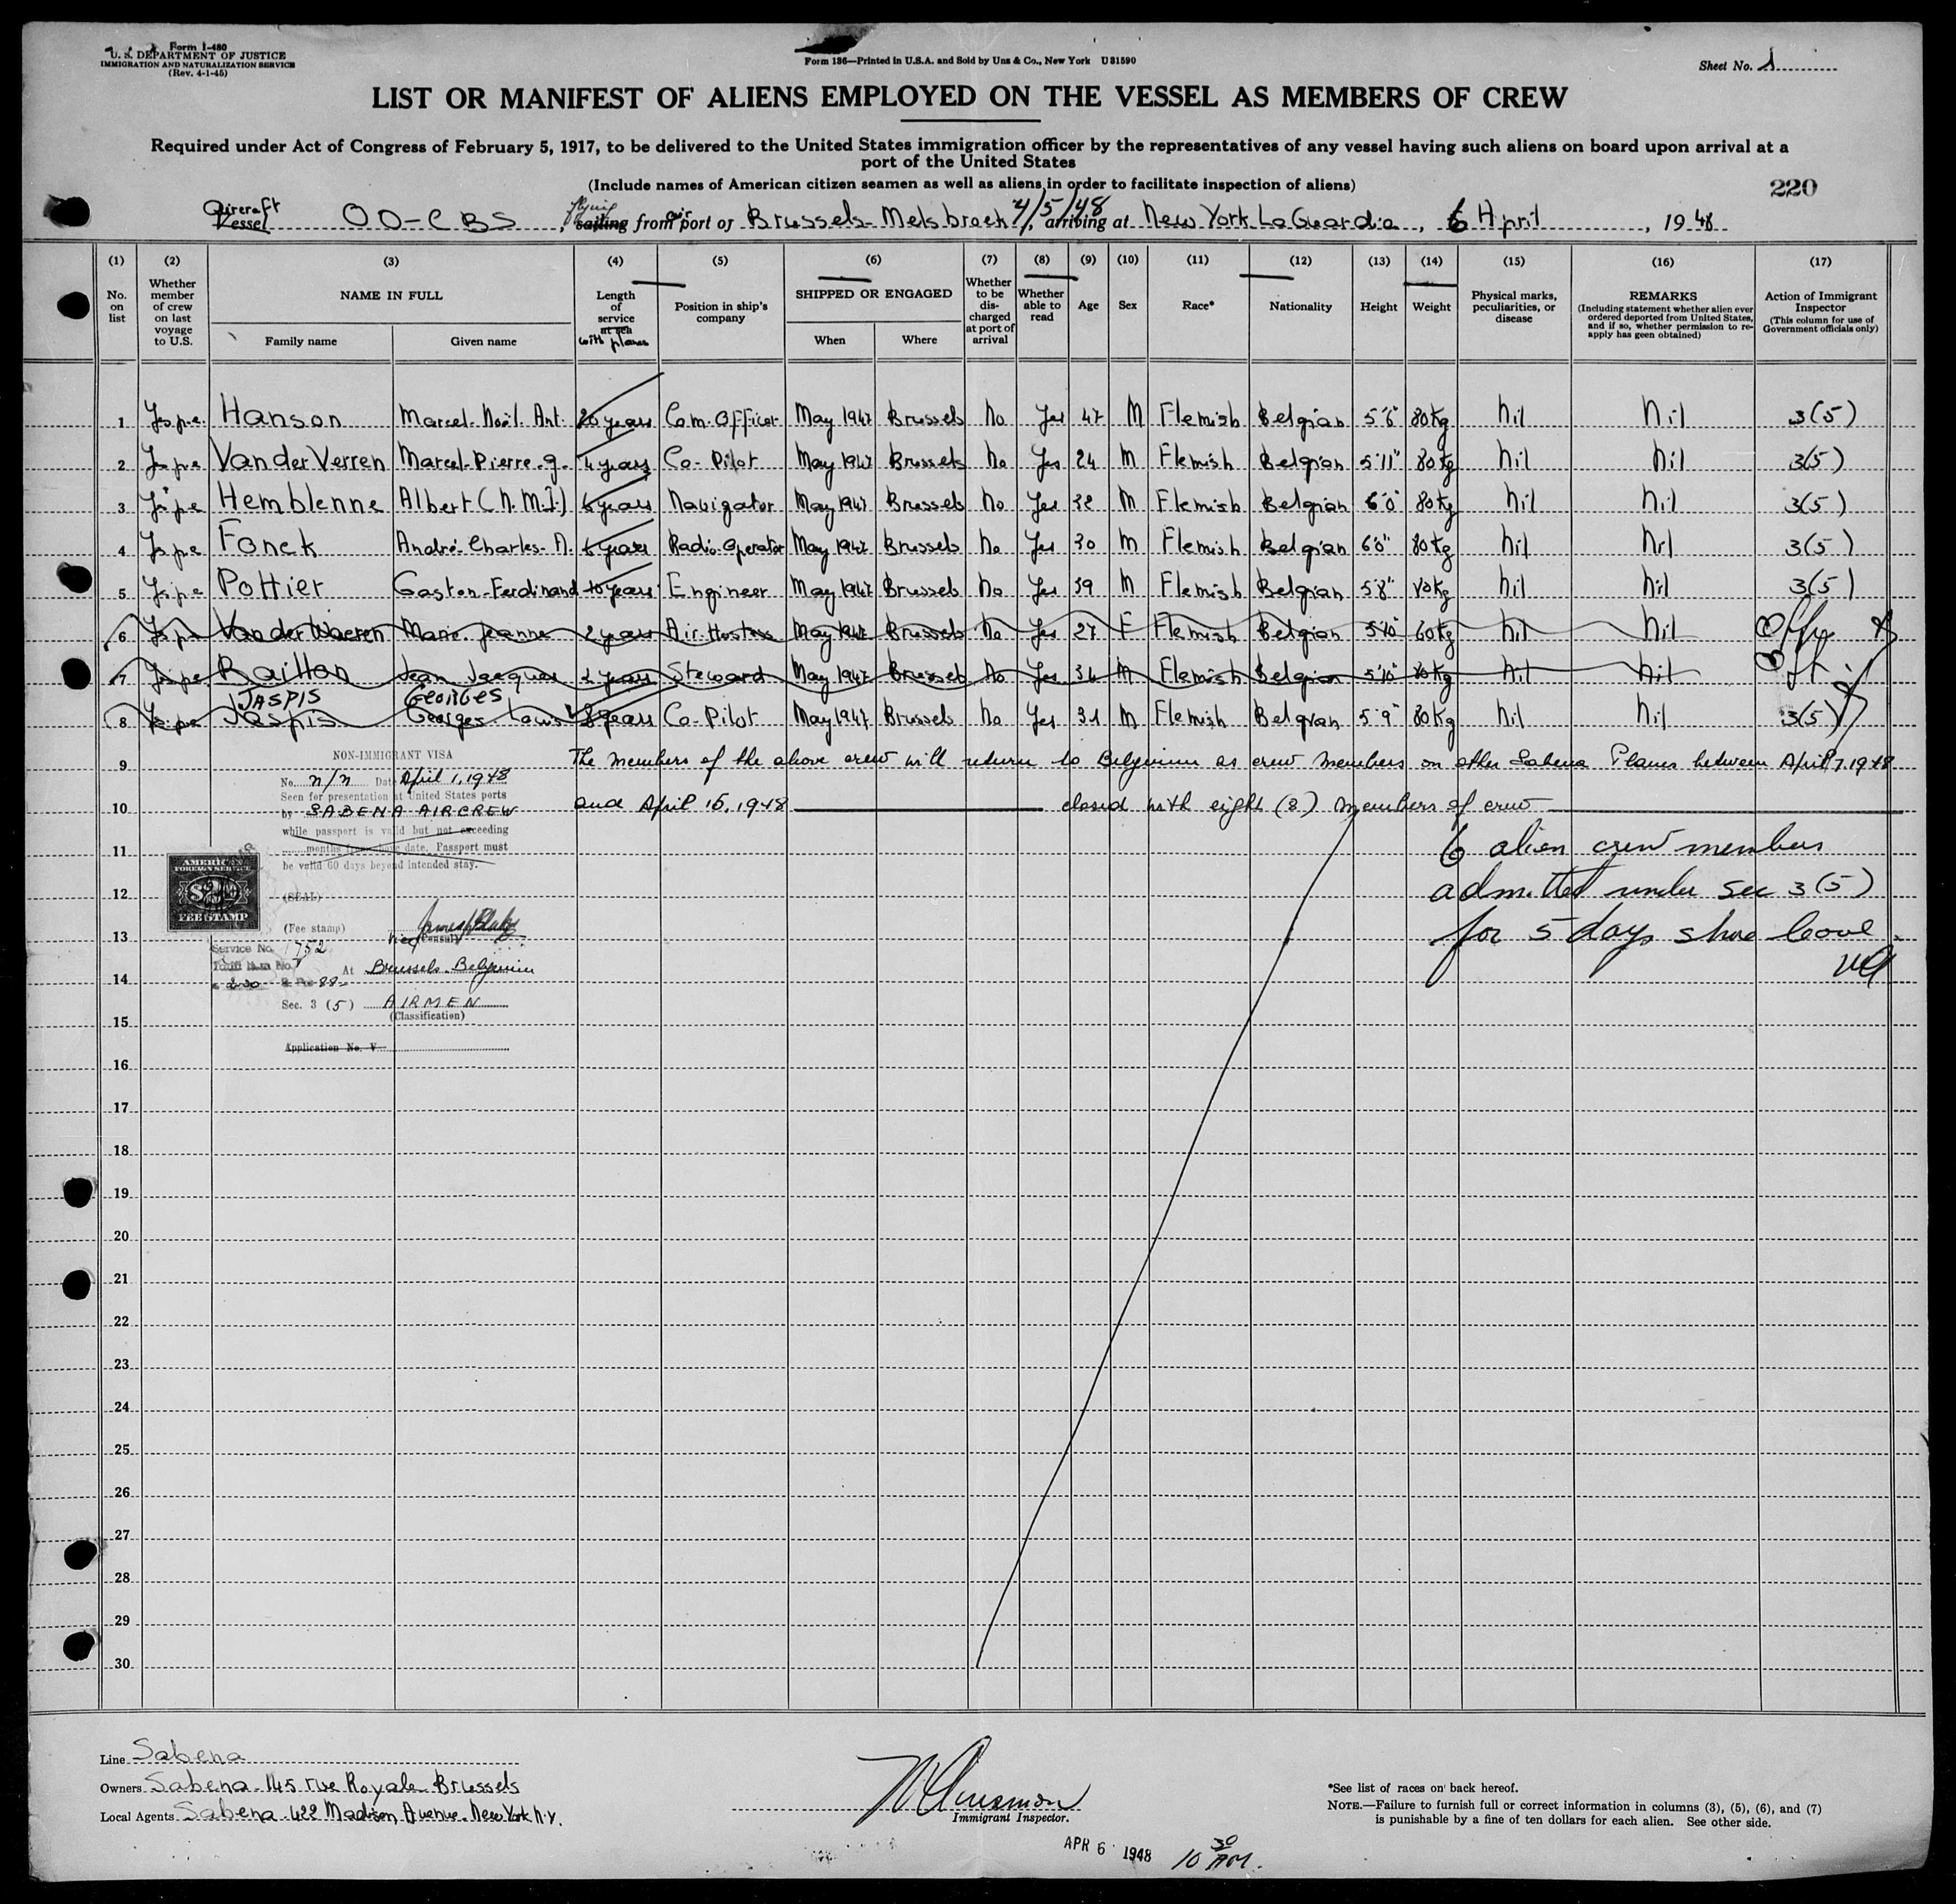 Form I-480
U. S. DEPARTMENT OF JUSTICE
IMMIGRATION AND NATURALIZATION SERVICE
(Rev. 4-1-45)
Form 136—Printed in U.S.A. and Sold by Unz & Co., New York U 81590
Sheet No. 1
LIST OR MANIFEST OF ALIENS EMPLOYED ON THE VESSEL AS MEMBERS OF CREW
Required under Act of Congress of February 5, 1917, to be delivered to the United States immigration officer by the representatives of any vessel having such aliens on board upon arrival at a
port of the United States
(Include names of American citizen seamen as well as aliens in order to facilitate inspection of aliens)
220
Aircraft flying air 4/5/48
Vessel OO-CBS, sailing from port of Brussels-Melsbroek, arriving at New York La Guardia, 6 April, 1948
(1) (2) (3) (4) (5) (6) (7) (8) (9) (10) (11) (12) (13) (14) (15) (16) (17)
No. on list
Whether member of crew on last voyage to U.S.
NAME IN FULL
Family name
Given name
Length of service at sea
with planes
Position in ship's company
SHIPPED OR ENGAGED
When
Where
Whether to be discharged at port of arrival
Whether able to read
Age
Sex
Race*
Nationality
Height
Weight
Physical marks, peculiarities, or disease
REMARKS
(Including statement whether alien ever ordered deported from United States, and if so, whether permission to re-apply has geen obtained)
Action of Immigrant Inspector
(This column for use of Government officials only)
1 Hanson Marcel-Noël. Ant. 20 years Com. Officer May 1947 Brussels No Yes 47 M Flemish Belgian 5'6" 80 kg Nil Nil 3(5)
2 Van der Verren Marcel-Pierre-G. 4 years Co-Pilot May 1947 Brussels No Yes 24 M Flemish Belgian 5'11" 80 kg Nil Nil 3(5)
3 Hemblenne Albert (N.M.I.) 6 years Navigator May 1947 Brussels No Yes 32 M Flemish Belgian 6'0" 80 kg Nil Nil 3(5)
4 Fonck André-Charles-N. 6 years Radio-Operator May 1947 Brussels No Yes 30 M Flemish Belgian 6'0" 80 kg Nil Nil 3(5)
5 Pottier Gaston-Ferdinand 10 years Engineer May 1947 Brussels No Yes 39 M Flemish Belgian 5'8" 80 kg Nil Nil 3(5)
6 Van der Waeren Marie-Jeanne 2 years Air-Hostess May 1947 Brussels No Yes 27 F Flemish Belgian 5'10" 60 kg Nil Nil
7 Baillon Jean Jacques 2 years Steward May 1947 Brussels No Yes 34 M Flemish Belgian 5'10" 80 kg Nil Nil
JASPIS GEORGES
8 Jaspis Georges Louis 8 years Co-Pilot May 1947 Brussels No Yes 31 M Flemish Belgian 5'9" 80 kg Nil Nil 3(5)
9 The members of the above crew will return to Belgium as crew members on other Sabena Planes between April 7, 1948
10 and April 15, 1948 closed with eight (8) members of crew
NON-IMMIGRANT VISA
No. n/n Date April 1, 1948
Seen for presentation at United States ports
by SABENA AIRCREW
while passport is valid but not exceeding
months from above date. Passport must
be valid 60 days beyond intended stay.
(SEAL)
(Fee stamp)
AMERICAN
FOREIGN SERVICE
FEE STAMP
Vice Consul
Service No. 1752
At Brussels-Belgium
Sec. 3 (5) AIRMEN
(Classification)
Application No. V
6 alien crew members
admitted under Sec 3(5)
for 5 days shore leave
11
12
13
14
15
16
17
18
19
20
21
22
23
24
25
26
27
28
29
30
Line Sabena
Owners Sabena-145 rue Royale-Brussels
Local Agents Sabena-422 Madison Avenue-New York N.Y.
Immigrant Inspector.
APR 6 1948 10 30 AM.
*See list of races on back hereof.
NOTE.—Failure to furnish full or correct information in columns (3), (5), (6), and (7)
is punishable by a fine of ten dollars for each alien. See other side.